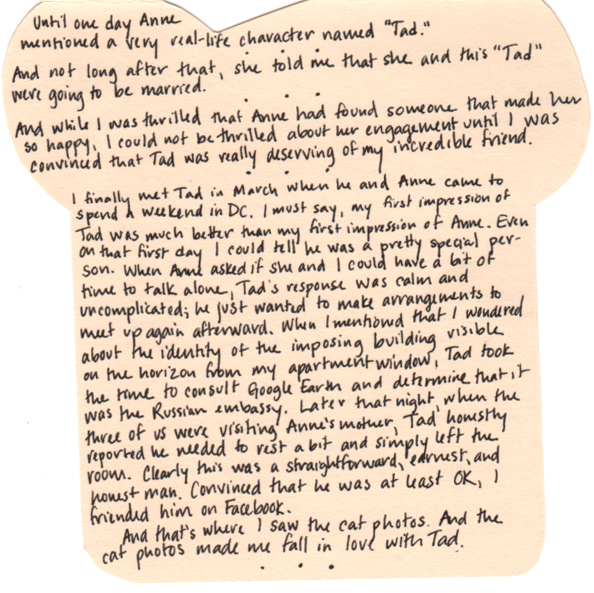 Until one day Anne
mentioned a very real-life character named "Tad."
• • •
And not long after that, she told me that she and this "Tad"
were going to be married.
• • •
And while I was thrilled that Anne had found someone that made her
so happy, I could not be thrilled about her engagement until I was
convinced that Tad was really deserving of my incredible friend.
• • •
I finally met Tad in March when he and Anne came to
spend a weekend in DC. I must say, my first impression of
Tad was much better than my first impression of Anne. Even
on that first day I could tell he was a pretty special per-
son. When Anne asked if she and I could have a bit of
time to talk alone, Tad's response was calm and
uncomplicated; he just wanted to make arrangements to
meet up again afterward. When I mentioned that I wondered
about the identity of the imposing building visible
on the horizon from my apartment window, Tad took
the time to consult Google Earth and determine that it
was the Russian embassy. Later that night, when the
three of us were visiting Anne's mother, Tad honestly
reported he needed to rest a bit and simply left the
room. Clearly this was a straightforward, earnest, and
honest man. Convinced that he was at least OK, I
friended him on Facebook.
And that's where I saw the cat photos. And the
cat photos made me fall in love with Tad.
• • •